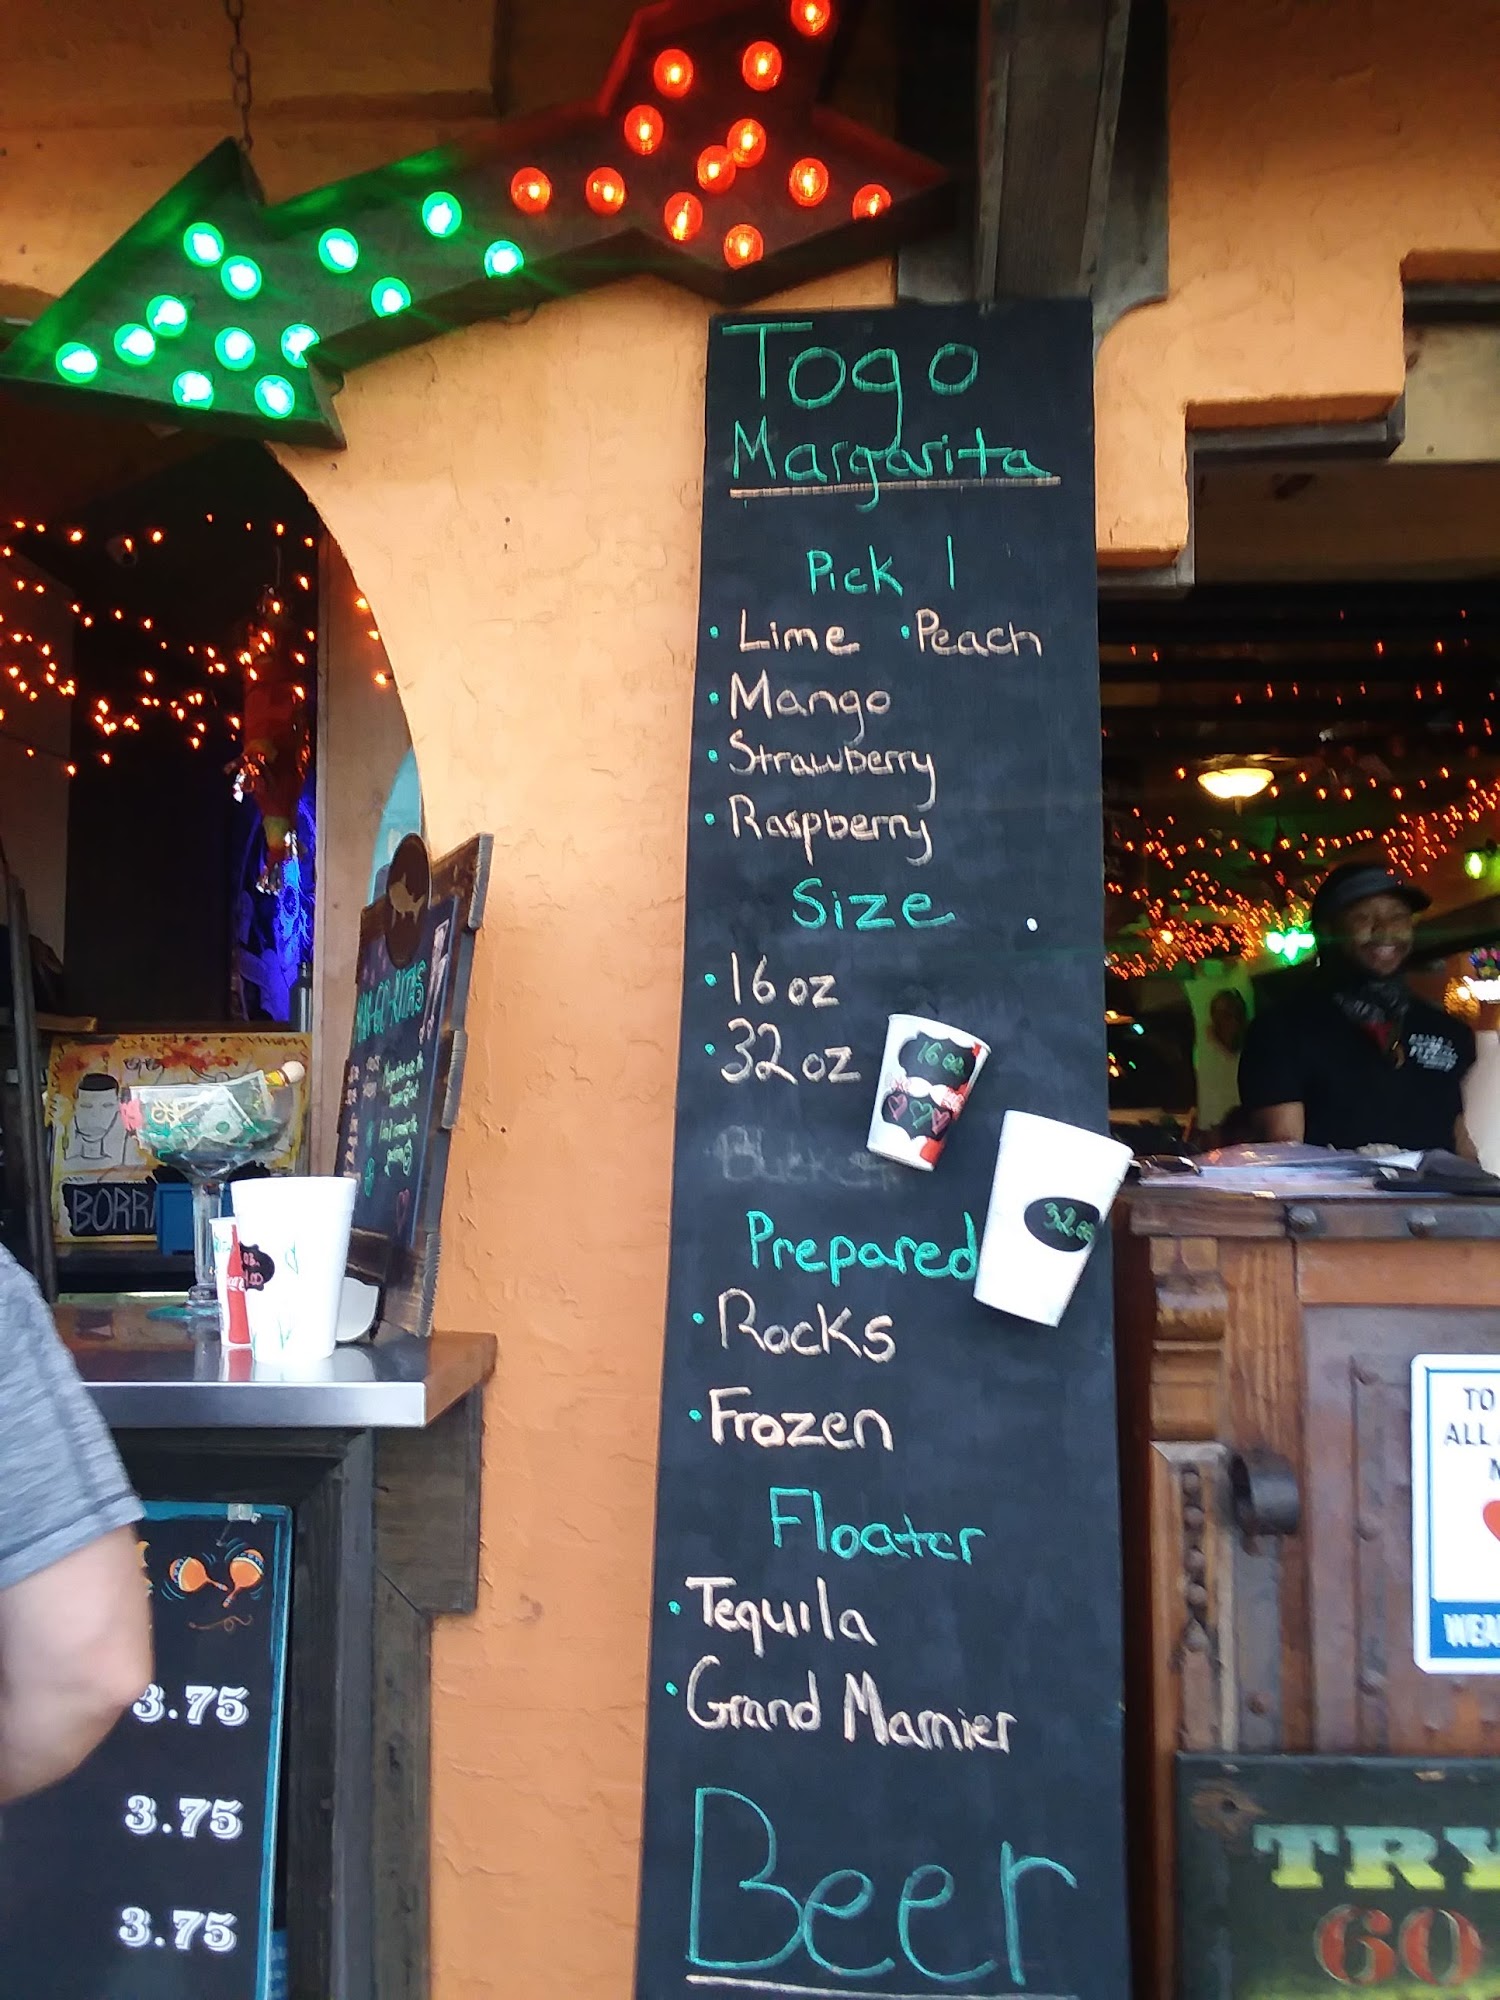 Togo
Margarita
Pick 1
• Lime • Peach
• Mango
• Strawberry
• Raspberry
Size
• 16 oz
• 32 oz
16 oz
32 oz
Prepared
• Rocks
• Frozen
Floater
• Tequila
• Grand Marnier
Beer
BORR
3.75
3.75
3.75
TO
ALL
WEA
TRY
60